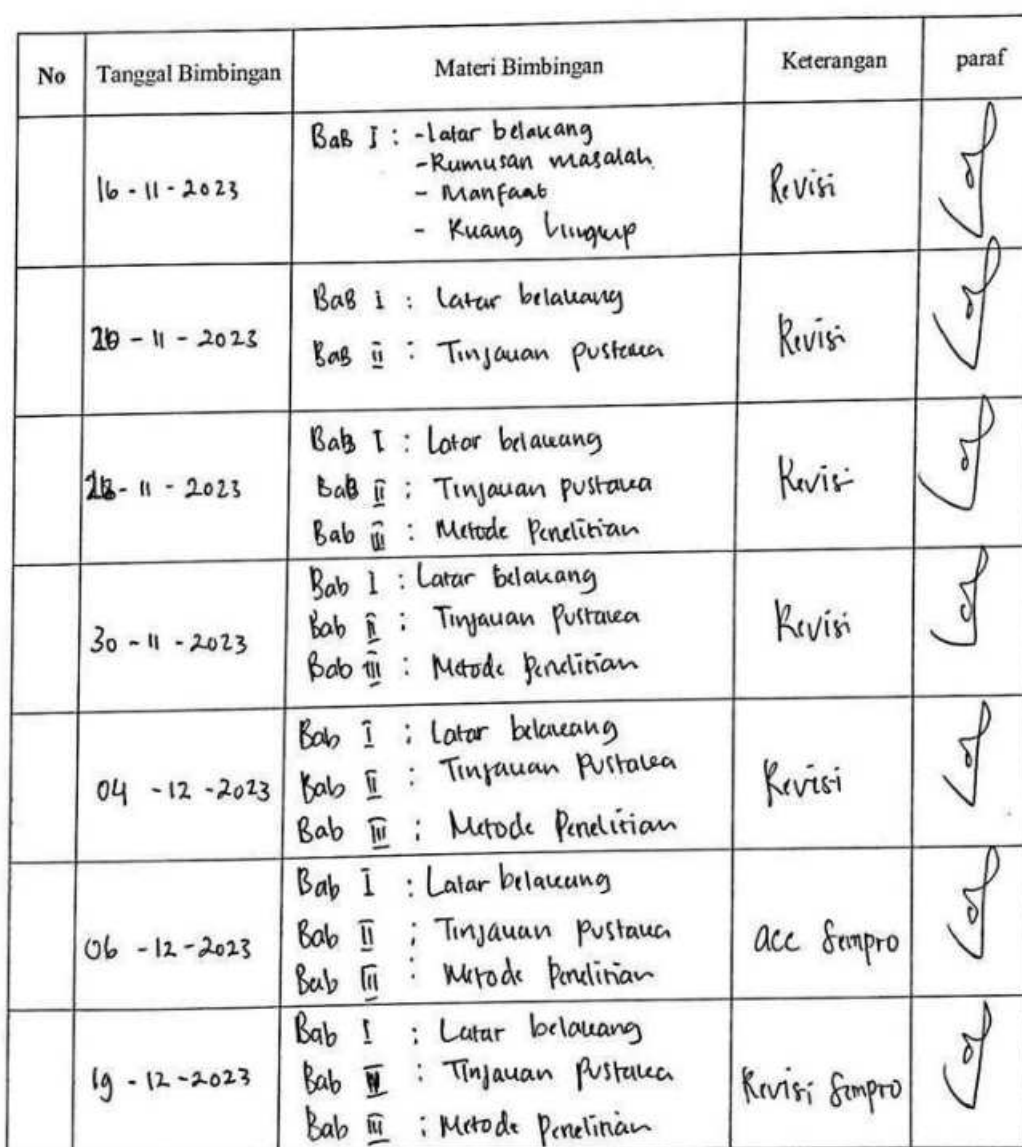 No Tanggal Bimbingan Materi Bimbingan Keterangan paraf
BaB I : - Latar belakang
- Rumusan masalah
- Manfaat
- Ruang lingkup
16 - 11 - 2023 Revisi
BaB I : Latar belakang
BaB II : Tinjauan pustaka
- 11 - 2023 Revisi
Bab I : Latar belakang
BaB II : Tinjauan pustaka
Bab III : Metode Penelitian
- 11 - 2023 Revisi
Bab I : Latar belakang
Bab II : Tinjauan Pustaka
Bab III : Metode Penelitian
30 - 11 - 2023 Revisi
Bab I : Latar belakang
Bab II : Tinjauan Pustaka
Bab III : Metode Penelitian
04 - 12 - 2023 Revisi
Bab I : Latar belakang
Bab II : Tinjauan Pustaka
Bab III : Metode Penelitian
06 - 12 - 2023 acc Sempro
Bab I : Latar belakang
Bab II : Tinjauan Pustaka
Bab III : Metode Penelitian
19 - 12 - 2023 Revisi Sempro